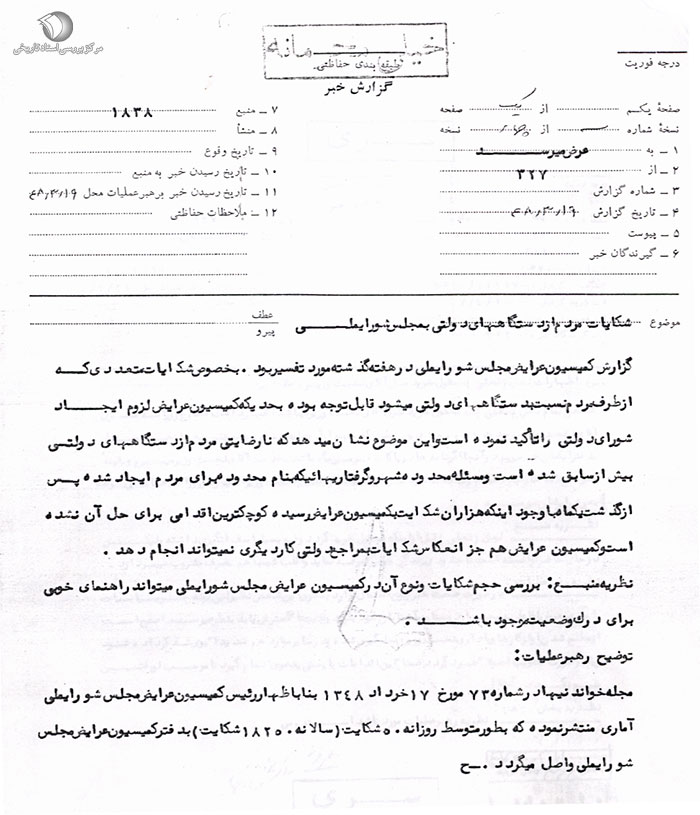 مرکز بررسی اسناد تاریخی
خیلی محرمانه
طبقه بندی حفاظتی
گزارش خبر
درجه فوریت
صفحهٔ یکم از یک صفحه
نسخهٔ شماره از نسخه
۱ ـ به عرض میرسد
۲ ـ از ۳۲۷
۳ ـ شماره گزارش
۴ ـ تاریخ گزارش ۴۸٫۳٫۱۹
۵ ـ پیوست
۶ ـ گیرندگان خبر
۷ ـ منبع ۱۸۳۸
۸ ـ منشأ
۹ ـ تاریخ وقوع
۱۰ ـ تاریخ رسیدن خبر به منبع
۱۱ ـ تاریخ رسیدن خبر برهبر عملیات محل ۴۸٫۳٫۱۹
۱۲ ـ ملاحظات حفاظتی
موضوع شکایات مردم از دستگاههای دولتی بمجلس شورایملی
عطف
پیرو
گزارش کمیسیون عرایض مجلس شورایملی در هفته گذشته مورد تفسیر بود . بخصوص شکایات متعددی که
از طرف مردم نسبت بدستگاههای دولتی میشود قابل توجه بوده بحدیکه کمیسیون عرایض لزوم ایجاد
شورای دولتی را تأکید نموده است و این موضوع نشان میدهد که نارضایتی مردم از دستگاههای دولتی
بیش از سابق شده است و مسئله محدوده شهر و گرفتاریهائیکه بنام محدوده برای مردم ایجاد شده پس
از گذشت یکماه با وجود اینکه هزاران شکایت بکمیسیون عرایض رسیده کوچکترین اقدامی برای حل آن نشده
است و کمیسیون عرایض هم جز انعکاس شکایات بمراجع دولتی کار دیگری نمیتواند انجام دهد .
نظریه منبع : بررسی حجم شکایات و نوع آن در کمیسیون عرایض مجلس شورایملی میتواند راهنمای خوبی
برای درک وضعیت موجود باشد .
توضیح رهبر عملیات :
مجله خواندنیها در شماره ۷۳ مورخ ۱۷ خرداد ۱۳۴۸ بنا باظهار رئیس کمیسیون عرایض مجلس شورایملی
آماری منتشر نموده که بطور متوسط روزانه ۵۰ شکایت (سالانه ۱۸۲۵۰ شکایت) بدفتر کمیسیون عرایض مجلس
شورایملی واصل میگردد . ـ ح